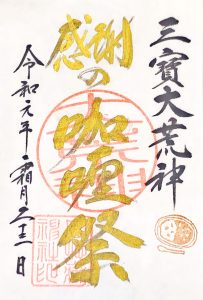 三寳大荒神
感謝の
咖喱祭
令和元年霜月二十二日